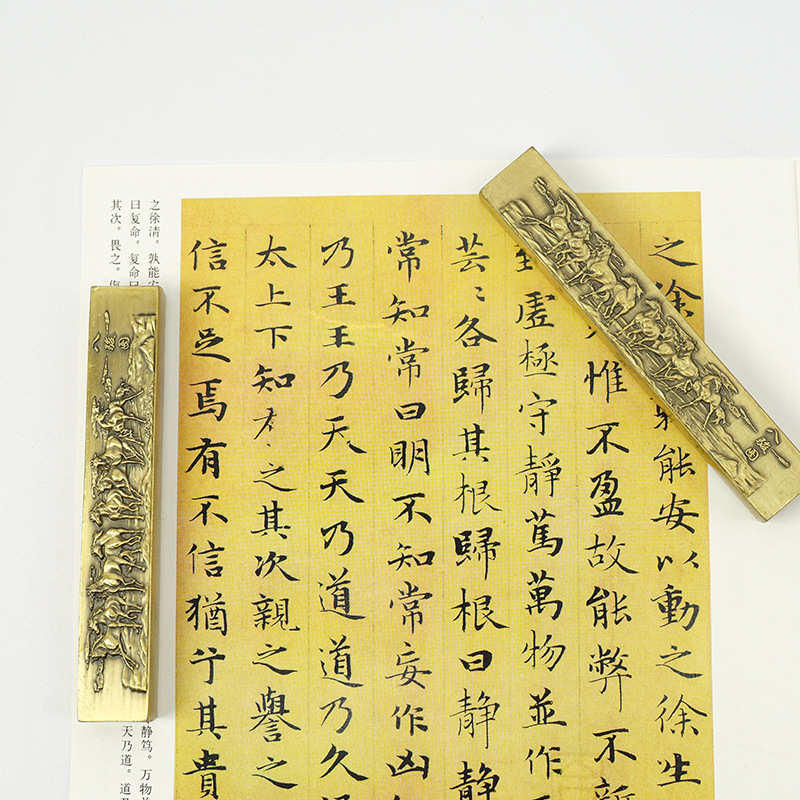 之徐
能安以動之徐生
惟不盈故能弊不新
虛極守靜篤萬物並作
芸〻各歸其根歸根曰静静
常知常曰明不知常妄作凶
乃王王乃天天乃道道乃久
太上下知之其次親之譽之
信不足焉有不信猶兮其貴
之徐清。孰能安
曰复命。复命曰
其次。畏之。
静笃。万物
天乃道。道
八骏图
八骏图